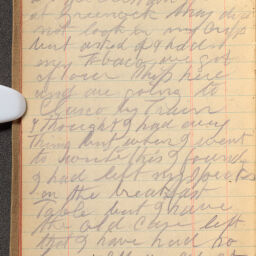 at Greenock they did
not look in my Grip
but asked if I had
any Tobacco we got
of our ship here
and are going to
by Train
I thought I had every
thing but when I went
to write this I found
I had left my Specks
on the breakfast
Table but I have
the old Case left
that I have had so